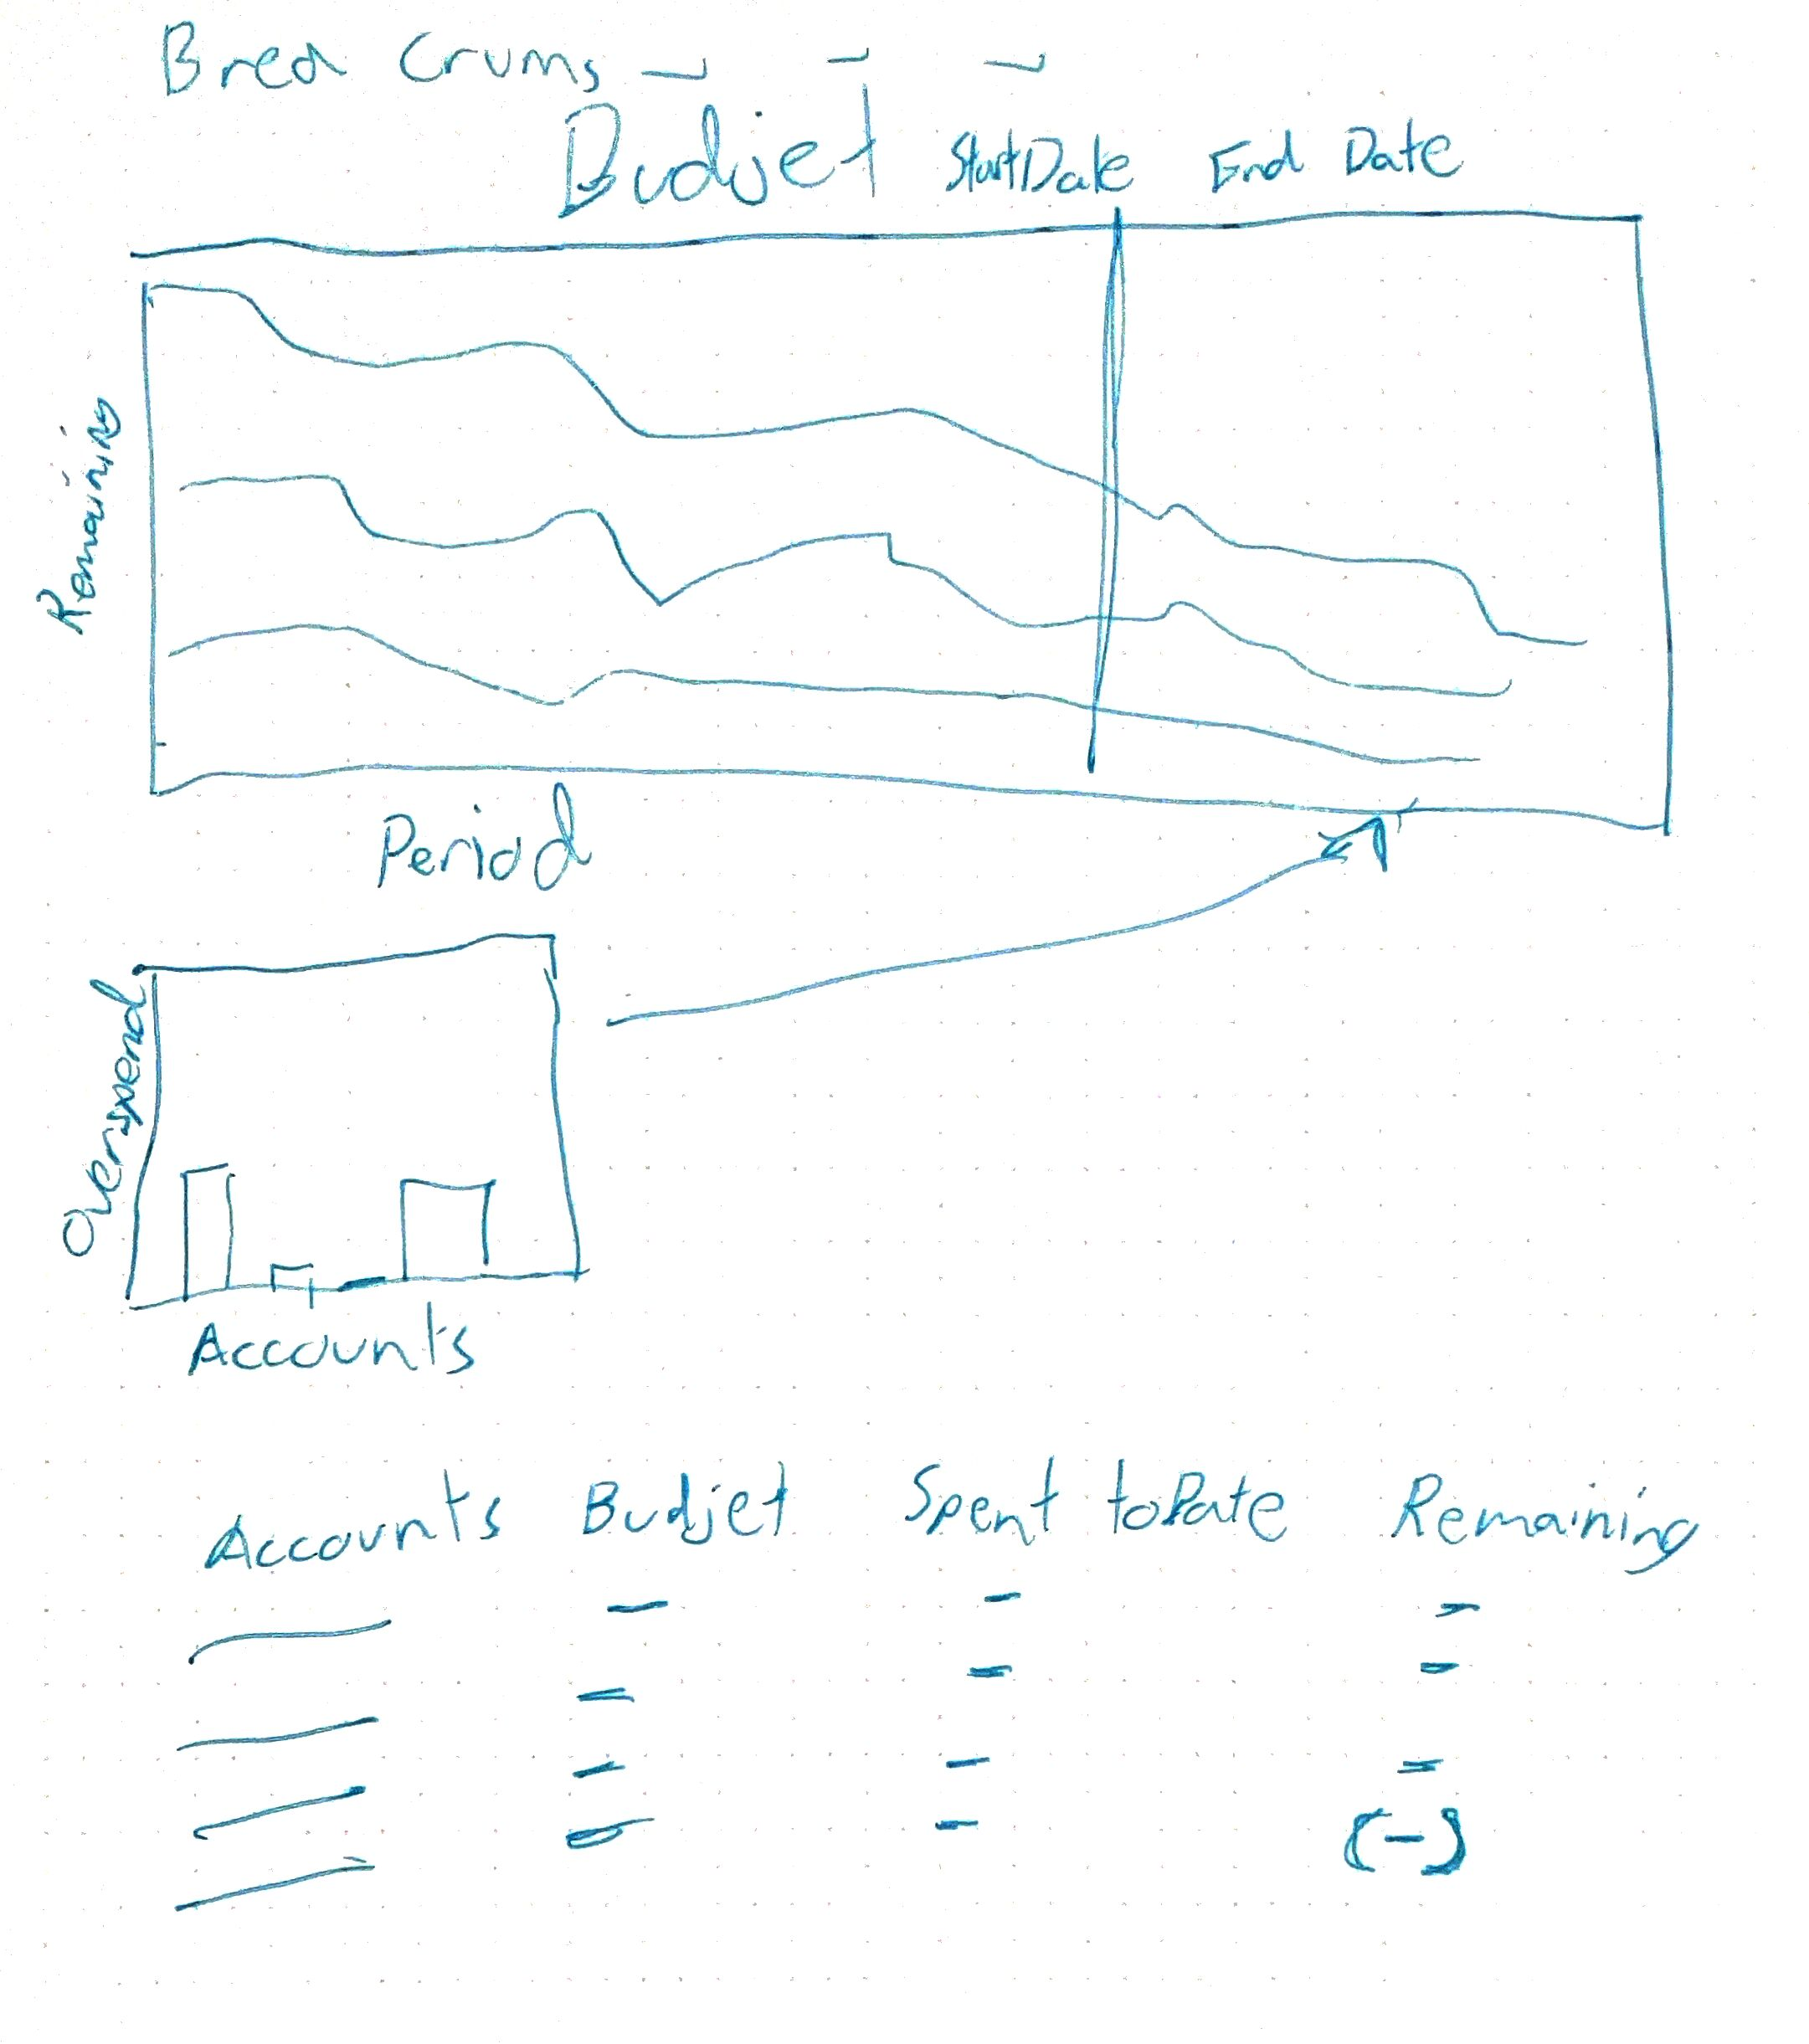 Bred Crums
Budjet Start Date End Date
Remaining
Period
Overspend
Accounts
Accounts Budjet Spent to Date Remaining
(-)